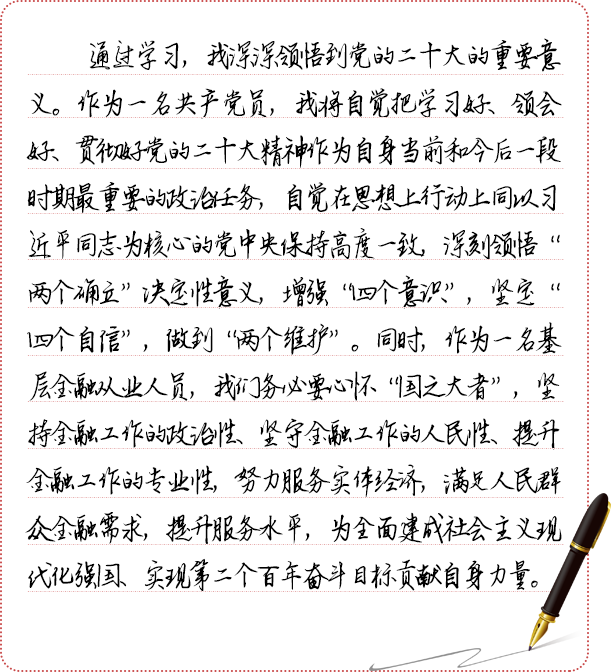 通过学习，我深深领悟到党的二十大的重要意
义。作为一名共产党员，我将自觉把学习好、领会
好、贯彻好党的二十大精神作为自身当前和今后一段
时期最重要的政治任务，自觉在思想上行动上同以习
近平同志为核心的党中央保持高度一致，深刻领悟“
两个确立”决定性意义，增强“四个意识”，坚定“
四个自信”，做到“两个维护”。同时，作为一名基
层金融从业人员，我们务必要心怀“国之大者”，坚
持金融工作的政治性、坚守金融工作的人民性、提升
金融工作的专业性，努力服务实体经济，满足人民群
众金融需求，提升服务水平，为全面建成社会主义现
代化强国、实现第二个百年奋斗目标贡献自身力量。